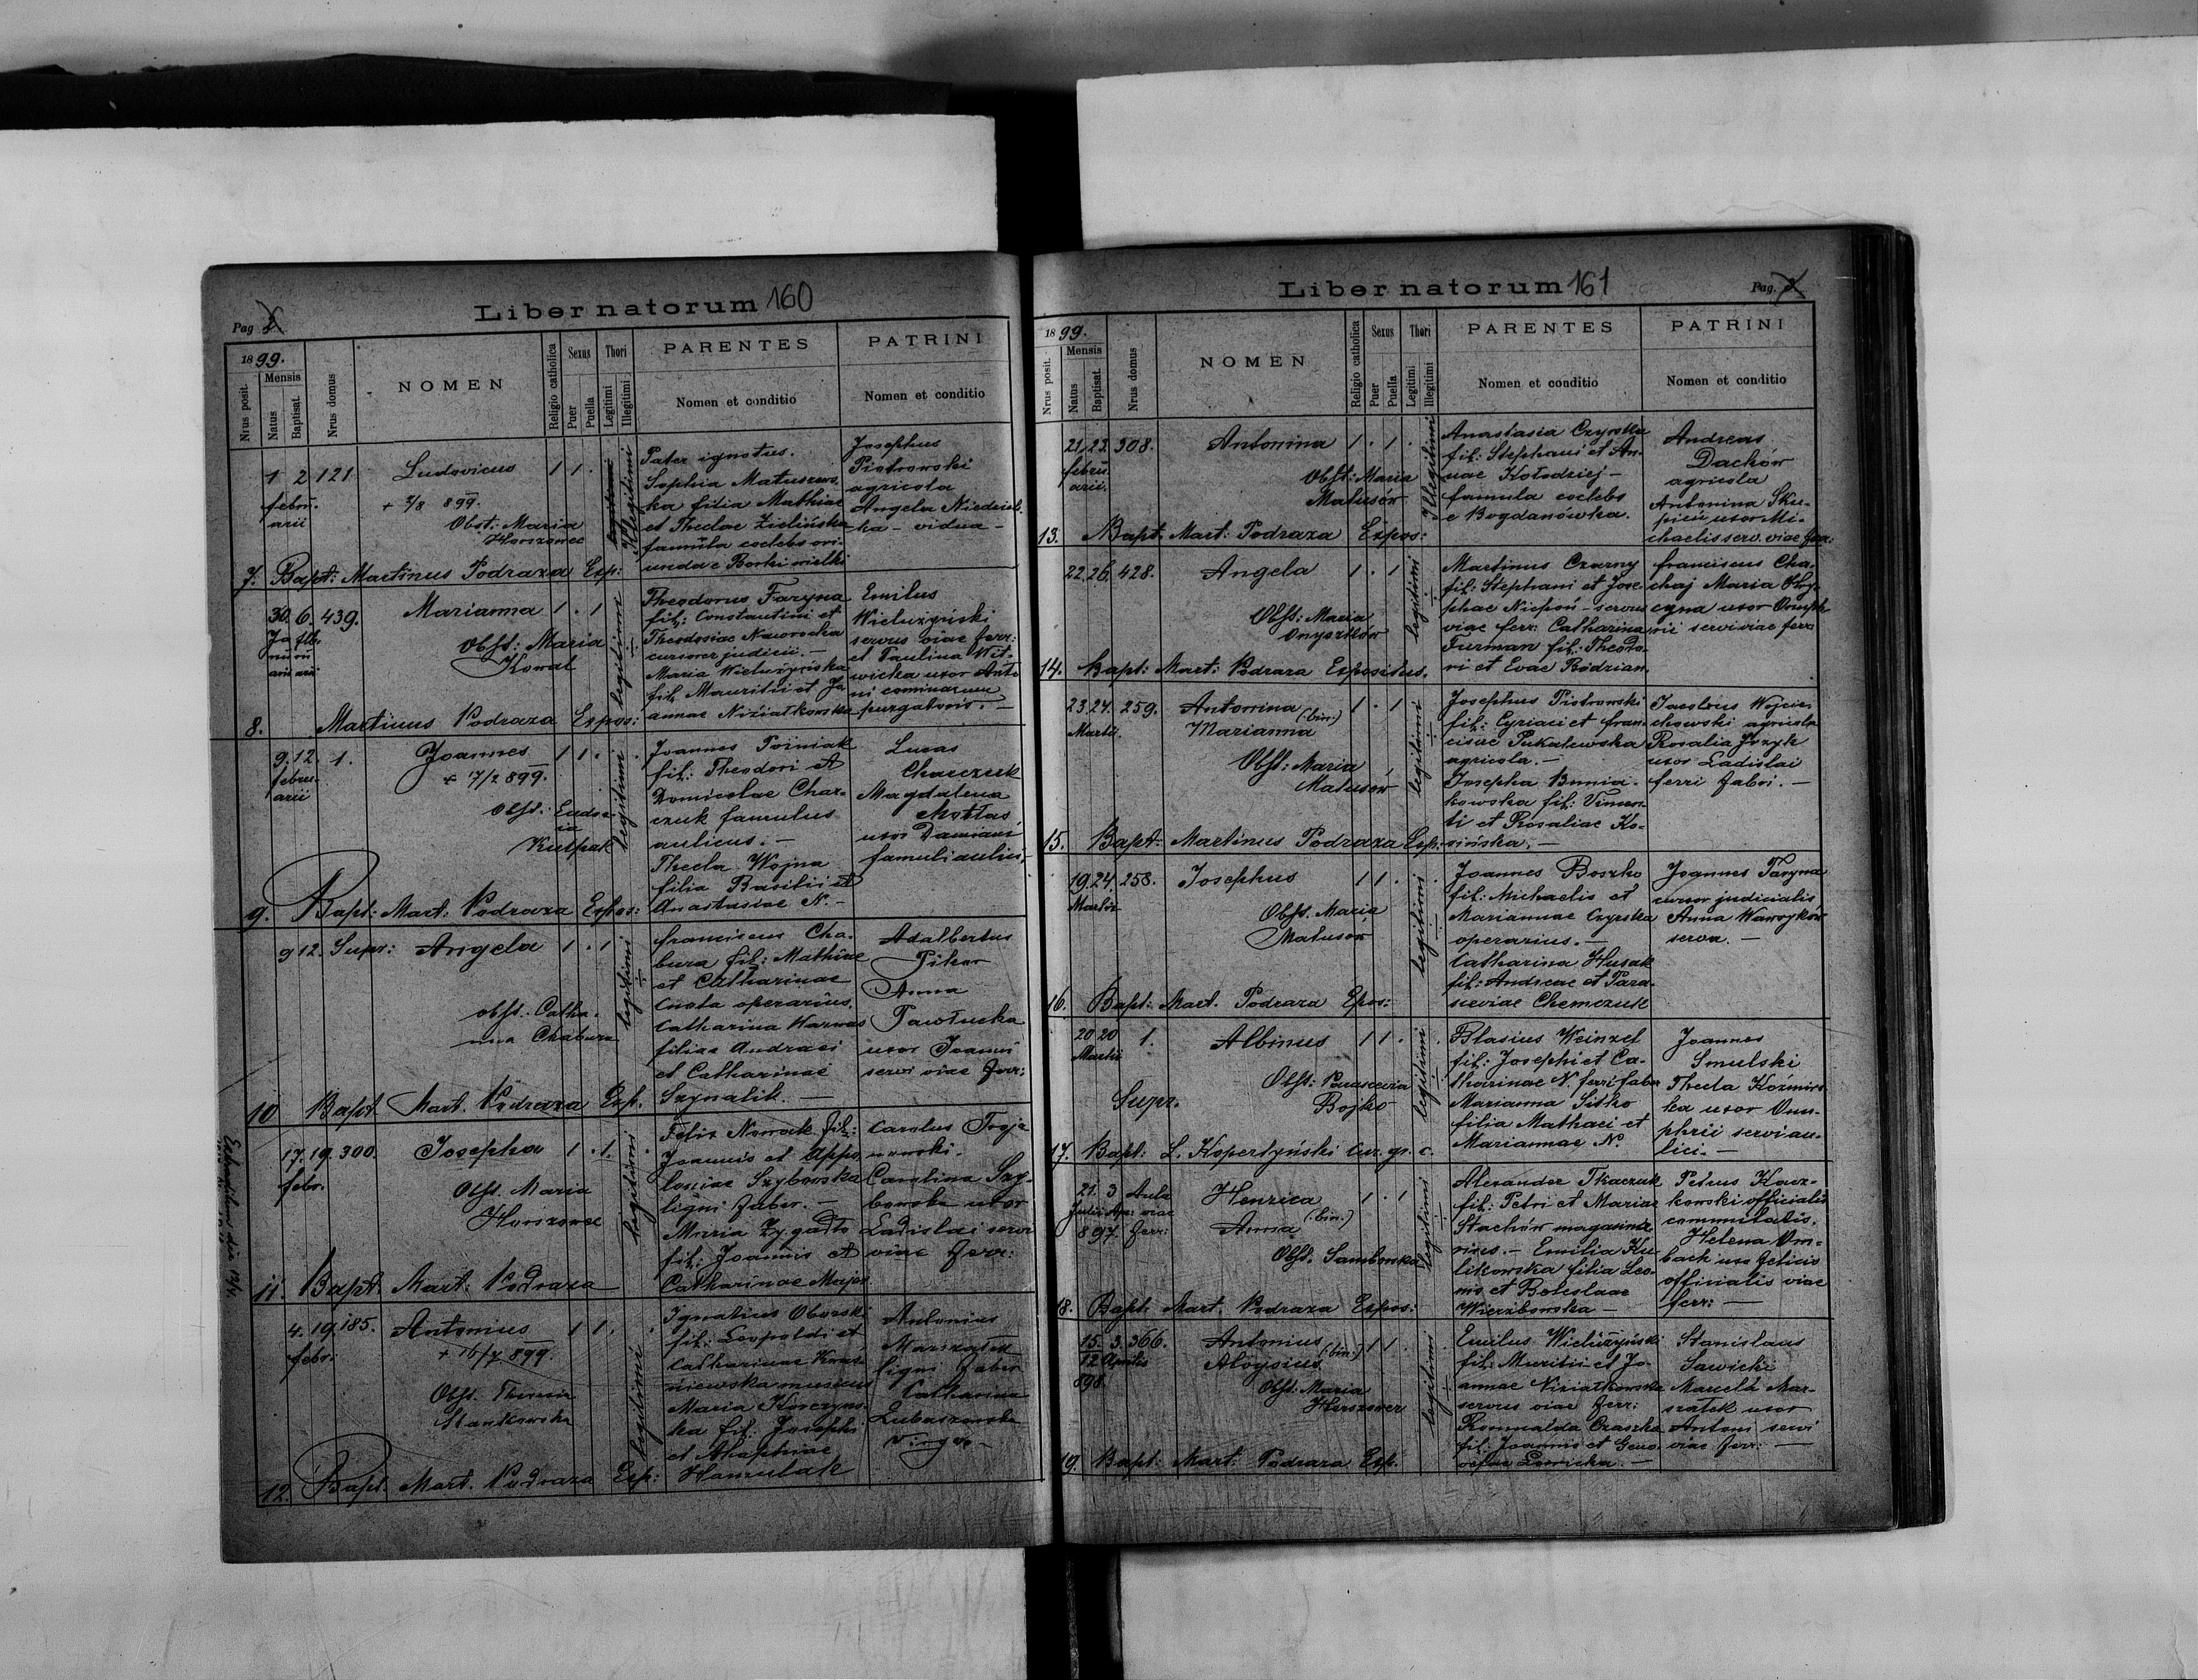 Liber natorum 160
Pag 2
1899.
Nrus posit.
Mensis
Natus
Baptisat.
Nrus domus
NOMEN
Religio catholica
Sexus
Puer
Puella
Thori
Legitimi
Illegitimi
PARENTES
Nomen et conditio
PATRINI
Nomen et conditio
1 2 121 Ludovicus 1 1 .
febru.
arii
+ 7/8 899.
Obst: Maria
Horszowec
Illegitimi
Pater ignotus.
Sophia Matuszews
ka filia Mathiae
et Theclae Zielińska
famula coelebs ori-
unda e Borki wielki
Josephus
Piotrowski
agricola
Angela Niedziel
ka - vidua -
7. Bapt: Martinus Podraza Exp:
30. 6. 439. Marianna 1 . 1
Obst: Maria
Kowal
legitimi
Theodorus Faryna
fil: Constantini et
Theodosiae Naworocka
cursorer judicii. -
Maria Wieluzyńska
fil. Mauritii et Jo
annae Niziałkowska
Emilus
Wieluzyński
servus viae ferr:
et Paulina Wit-
wicka uxor Anto
ni cominorum
purgatoris. -
8. Martinus Podraza Expos:
9. 12. 1. Joannes 1 1 .
febru-
arii
+ 17/2 899.
Obst: Eudoc
ia
Kulpak
legitimi
Joannes Poiniak
fil: Theodori et
Domicelae Char-
czuk famulus
aulicus. -
Thecla Wojna
filia Basilii et
Anastasiae N. -
Lucas
Charczuk
Magdalena
uxor Damiani
famuli aulici,
9. Bapt: Mart: Podraza Expos:
9 12. Supr: Angela 1 . 1
obst. Catha-
rina Chabura
legitimi
Franciscus Cha-
bura fil: Mathiae
et Catharinae
Cnota operarius.
Catharina Warnas
filiae Andraei
et Catharinae
Szynalik. -
Adalbertus
Pikor
Anna
Pawłucka
uxor Joanni
servi viae ferr:
10 Bapt. Mart. Podraza Exp.
17. 19. 300. Josepha 1 . 1 .
febr.
Obst. Maria
Horszowec
legitimi
Felix Nowak fil:
Joannis et Appo
loniae Szyborska
ligni faber. -
Maria Zygadło
fil: Joannis et
Catharinae Major
Carolus Troja
nowski.
Carolina Szy-
borska uxor
Ladislai servi
viae ferr:
11. Bapt. Mart: Podraza
4. 19. 185. Antonius 1 1 .
febr:
+ 16/7 899.
Obst. Theresia
Stankowska
legitimi
Ignatius Oborski
fil: Leopoldi et
Catharinae Kras-
niewska musicus
Maria Korczyns-
ka fil: Josephi
et Ahaphiae
Hamulak
Antonius
Marszałek
ligni faber
Catharina
Lubaszewska
virgo -
12. Bapt. Mart. Podraza Exp:
Liber natorum 161
Pag. 3
1899.
Nrus posit.
Mensis
Natus
Baptisat.
Nrus domus
NOMEN
Religio catholica
Sexus
Puer
Puella
Thori
Legitimi
Illegitimi
PARENTES
Nomen et conditio
PATRINI
Nomen et conditio
21. 23. 308. Antonina 1 . 1 .
febru
arii.
Obst: Maria
Matusów
Illegitimi
Anastasia Czyrska
fil: Stephani et An-
nae Kołodziej -
famula coelebs
e Bogdanówka.
Andreas
Dachów
agricola
Antonina Sku-
pień uxor Mi-
chaelis serv. viae ferr:
13. Bapt. Mart: Podraza Expos:
22. 26. 428. Angela 1 . 1
Obst: Maria
Onyszków
legitimi
Martinus Czarny
fil: Stephani et Jose-
phae Niepoń - servus
viae ferr: Catharina
Furman fil: Theodo-
ri et Evae Bodzian.
Franciscus Cha-
chaj Maria Obrę-
cyna uxor Onuph-
rii servi viae ferr:
14. Bapt: Mart: Podraza Expositus.
23. 24. 259. Antonina 1 . 1
Martii. (bin.)
Marianna
Obst: Maria
Matusów
legitimi
Josephus Piotrowski
fil: Cyriaci et Fran-
ciscae Pukalewska
agricola. -
Josepha Bunia-
kowska fil: Vincen-
ti et Rosaliae Ko-
sińska. -
Jacobus Wojcie-
chowski agricola
Rosalia Jozyk
uxor Ladislai
ferri fabri. -
15. Bapt: Martinus Podraza Exp:
19. 24. 258. Josephus 1 1 .
Martii
Obst. Maria
Matusów
legitimi
Joannes Boszko
fil: Michaelis et
Mariannae Czyrska
operarius. -
Catharina Husak
fil: Andreae et Para-
sceviae Chemczuk
Joannes Faryna
cursor judicialis
Anna Wawryków
serva. -
16. Bapt: Mart. Podraza Epos:
20 20 1. Albinus 1 1 .
Martii
Obst: Parascevia
Bojko
Supr.
legitimi
Blasius Weinzel
fil: Josephi et Ca-
tharinae N. ferri faber
Marianna Sitko
filia Mathaei et
Mariannae N.
Joannes
Smulski
Thecla Koźmins-
ka uxor Onu-
phrii servi au-
lici. -
17. Bapt: L. Kopertyński cur. gr. c.
21. 3 Aula Henrica 1 . 1
Julii Apr: viae (bin.)
897. ferr: Anna
Obst. Samborska
legitimi
Alexander Tkaczuk
fil: Petri et Mariae
Stachów magazina
rius. - Emilia Ku-
likowska filia Leo-
nis et Boleslaae
Wierzbowska -
Petrus Kacz-
kowski officialis
communitatis.
Helena Om-
bach uxo Felicis
officialis viae
ferr: -
18. Bapt. Mart. Podraza Expos:
15. 3. 366. Antonius 1 1
12 Aprilis (bin:)
898. Aloysius
Obst: Maria
Horszowec
legitimi
Emilus Wieluzyński
fil: Muritii et Jo-
annae Niziałkowska
servus viae ferr:
Romualda Czaszka
fil: Joannis et Geno-
vefae Lewicka. -
Stanislaus
Sawicki
Marcela Mar-
szałek uxor
Antoni servi
viae ferr: -
19. Bapt: Mart: Podraza Exp.